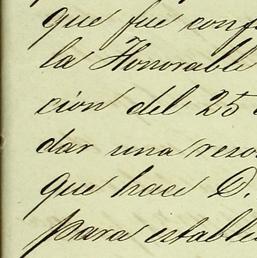 que fue conf
la Honorable
cion del 25
dar una reso
que hace D.
para estable